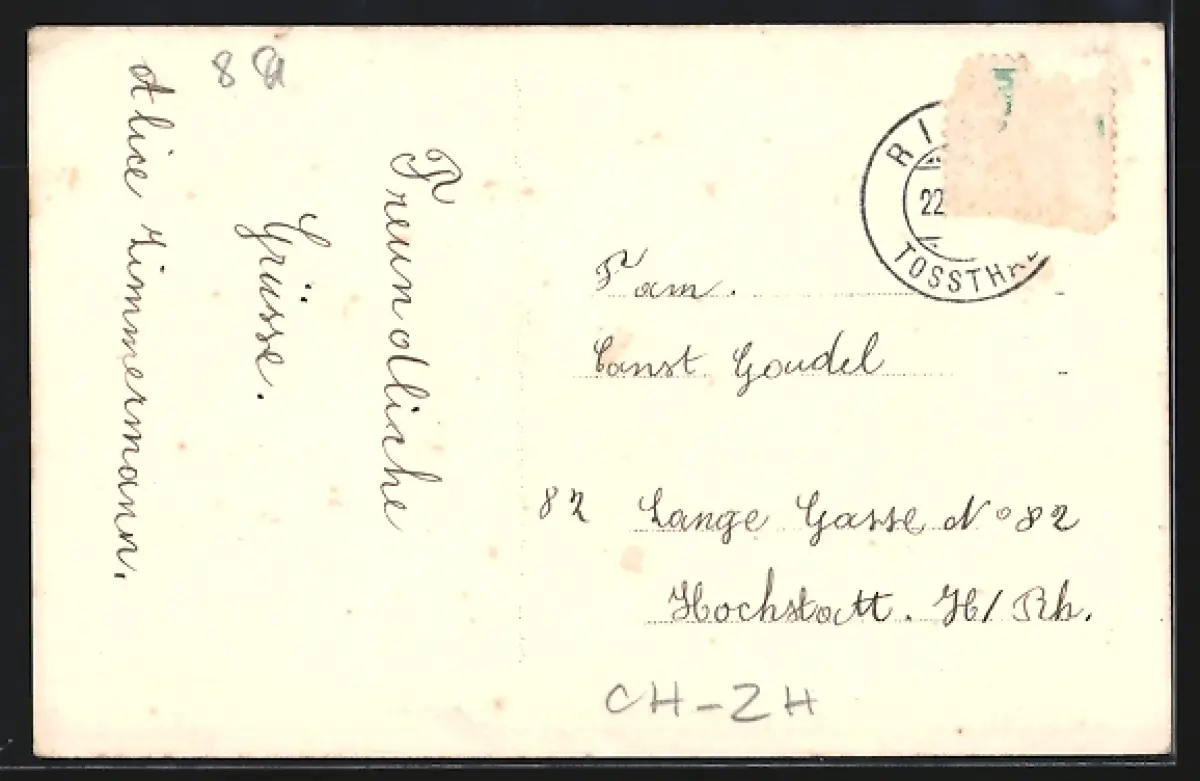 8
Freundliche
Grüsse.
Alice Zimmermann.
RI
22
TOSSTH
Fam.
Const Goudel
82 Lange Gasse No 82
Hochstatt. H/Rh.
CH-ZH